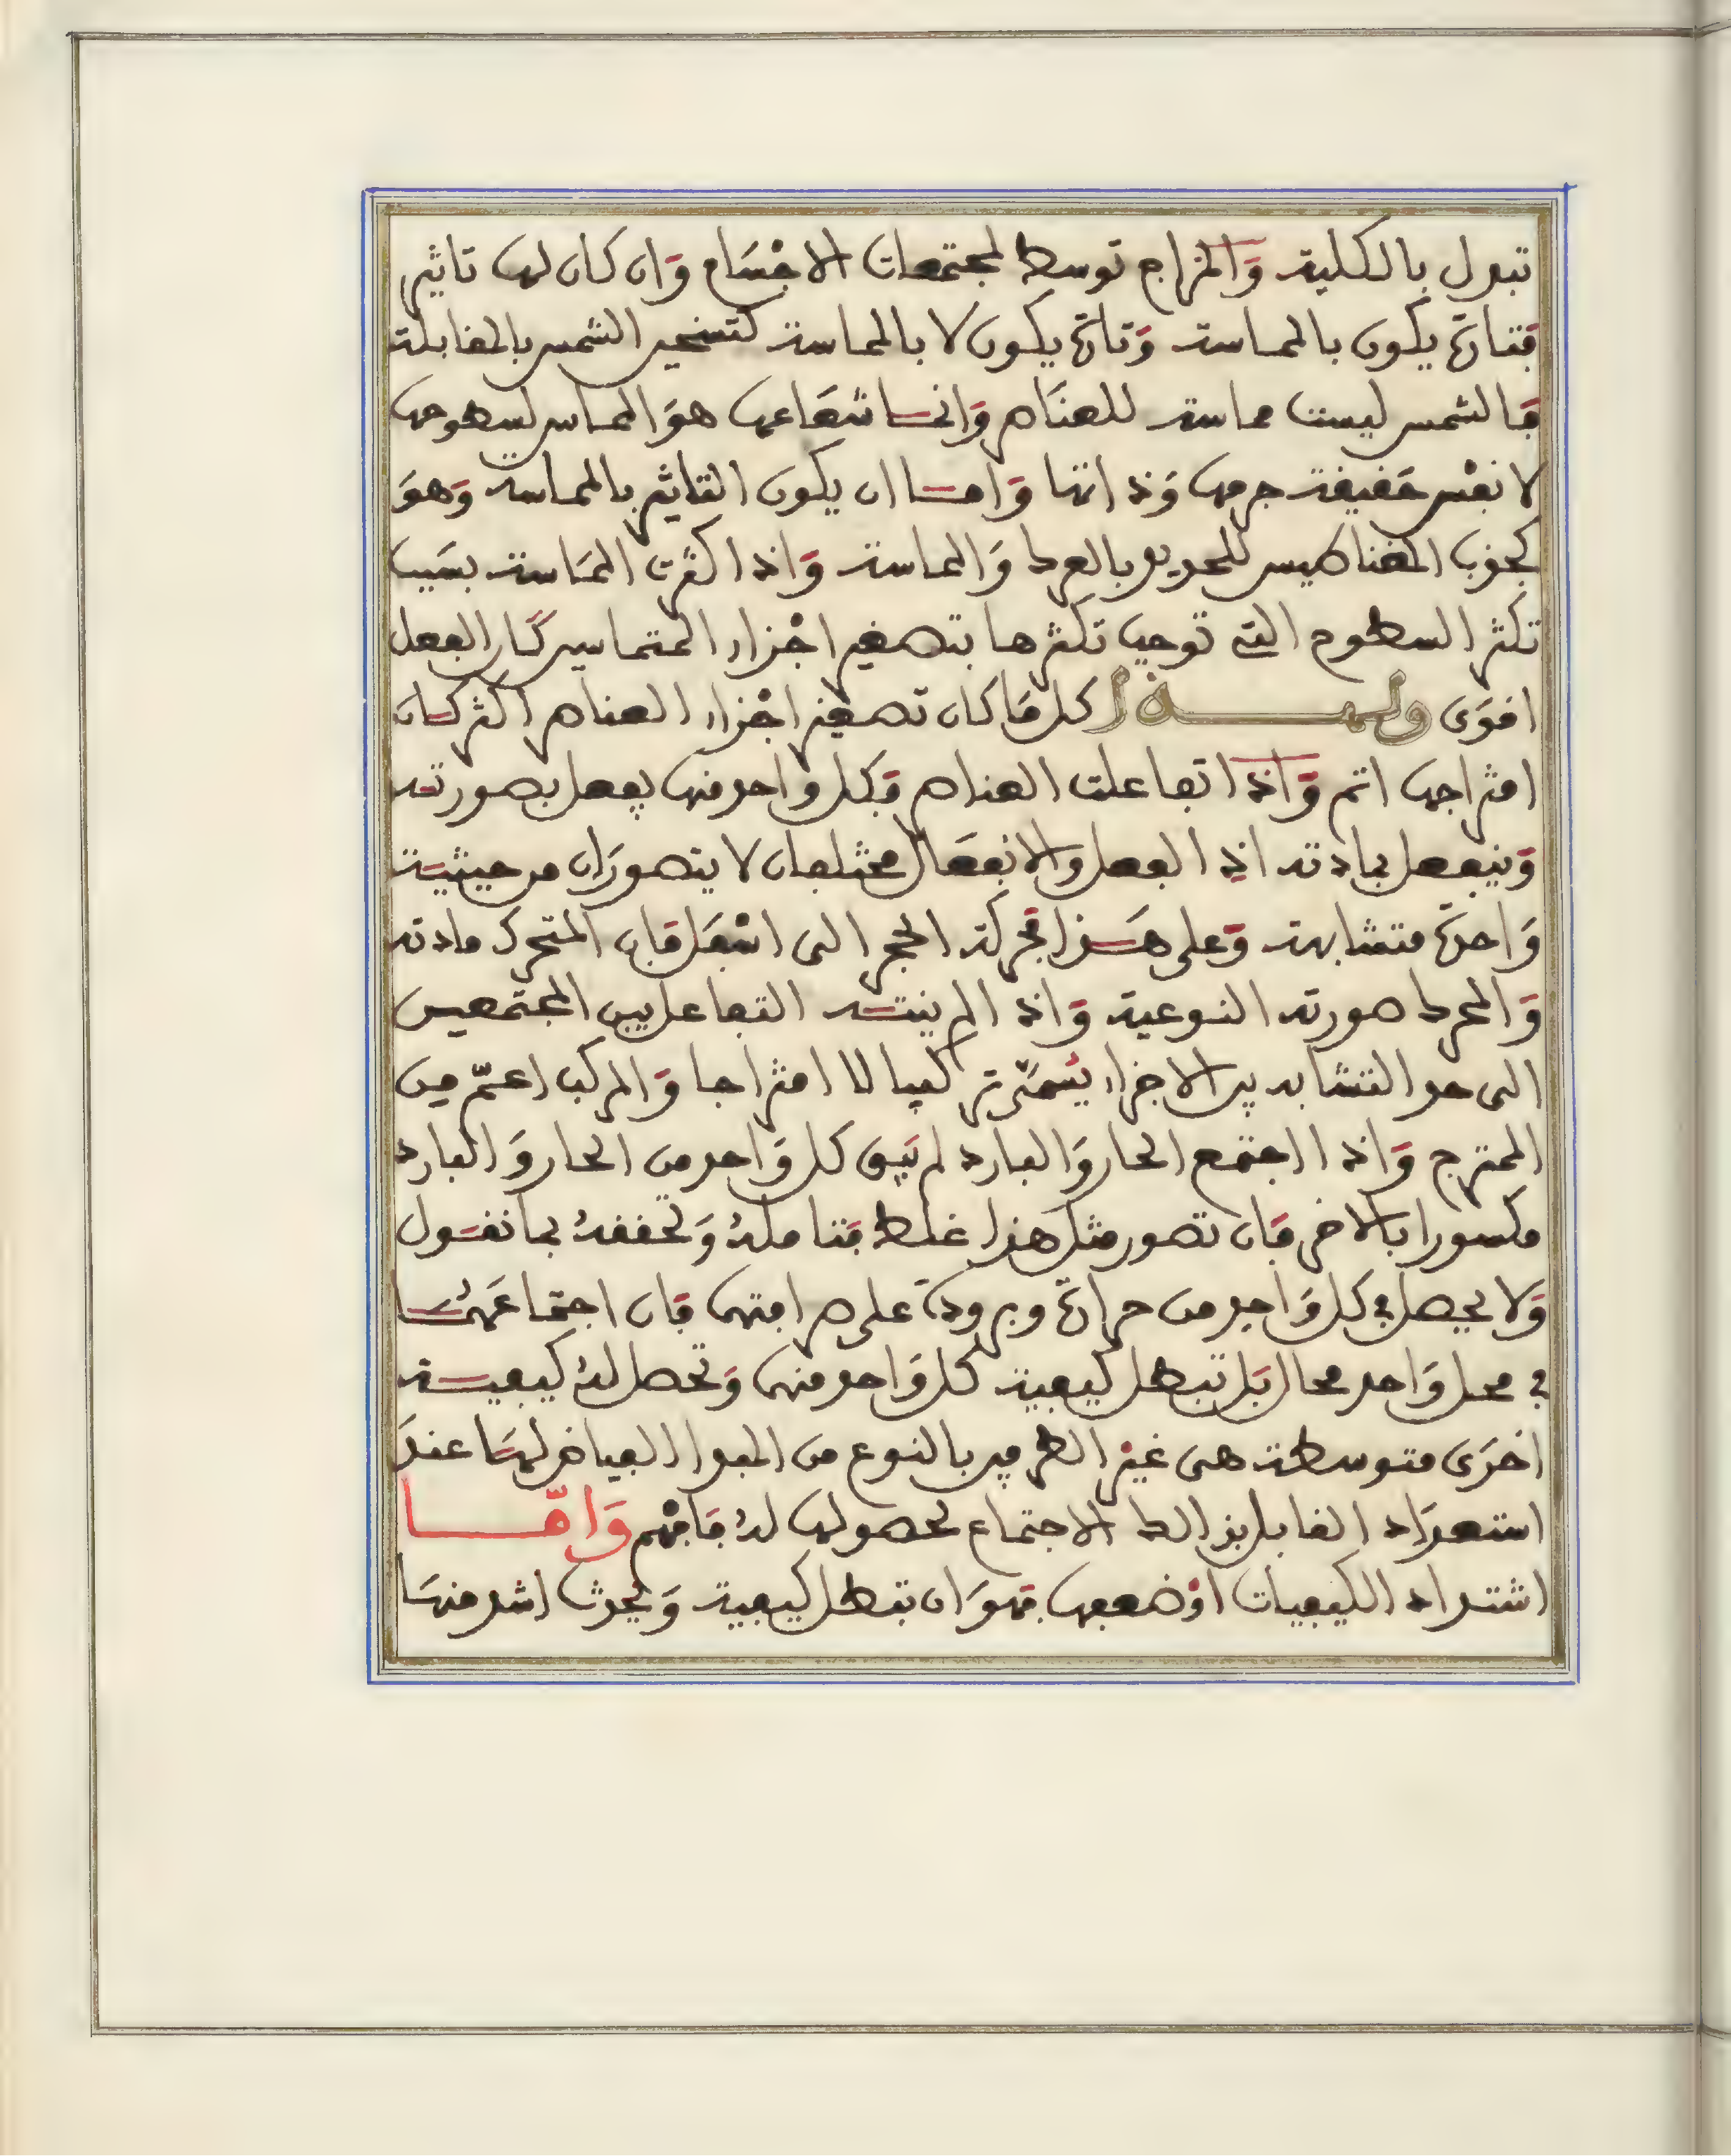 تبدل بالكلية وَالمزاج توسط لمجتمعات الاجْسَام وَان كان لها تاثير
فتارة يكون بالمماسة وَتارة يكون لا بالمماسة كتسخين الشمس بالمقابلة
فَالشمس ليست مماسة للعنَاصر وَانمـا شعَاعها هوَ المماس لسطوحها
لا نفْس حَقيقة جرمها وَذاتها وَامـا ان يكون التاثير بالمماسة وَهوَ
كجذب المغناطيس للحديد بالعدد وَالمماسة وَاذا كثرت المَماسة بسَبب
تكثر السطوح التي توجب تكثرها بتصغير اجْزاء المتماسين كَان الفعل
اقوَى ولهـذا كل مَا كان تصغير اجْزاء العناصر اكثر كـان
امتزاجها اتم وَاذا تفاعلت العناصر وَكل واحد منها يفعل بصورته
وَينفعل بمادته اذ الفعل والانفعَال مختلفان لا يتصورَان من حيثية
وَاحدة متشابهة وَعلى هَـذا فحركة الحجر الى اسْفل فَان المتحرك مادته
وَالمحرك صورته النوعية وَاذا لم ينتـه التفاعل بين المجتمعين
الى حد التشابه بين الاجزاء يُسَمّى تركيبا لا امتزاجا وَالمركب اعمّ من
الممتزج وَاذا اجتمع الحار وَالبارد لم يَبق كل وَاحد من الحار وَالبارد
مكسورا بالاخر فَان تصور مثل هذا غلط فتاملهُ وَتحققهُ بما نقـول
وَلا يحصل في كل وَاحد من حرارة وبرودة على صرافتها فَان اجتماعَهُمـا
في محل وَاحد محال بَل تبطل كيفية كل وَاحد منها وَتحصل لهُ كيفيـة
اخرَى متوسطة هى غيْر الطرفين بالنوع من المبدا الفياض لهمَا عندَ
استعدَاد القابل بذالك الاجتماع لحصولها لهُ فَافهْم وَامّـا
اشتداد الكيفيات اوْ ضعفها فهوَ ان تبطل كيفية وَيحدث اشد منهَا